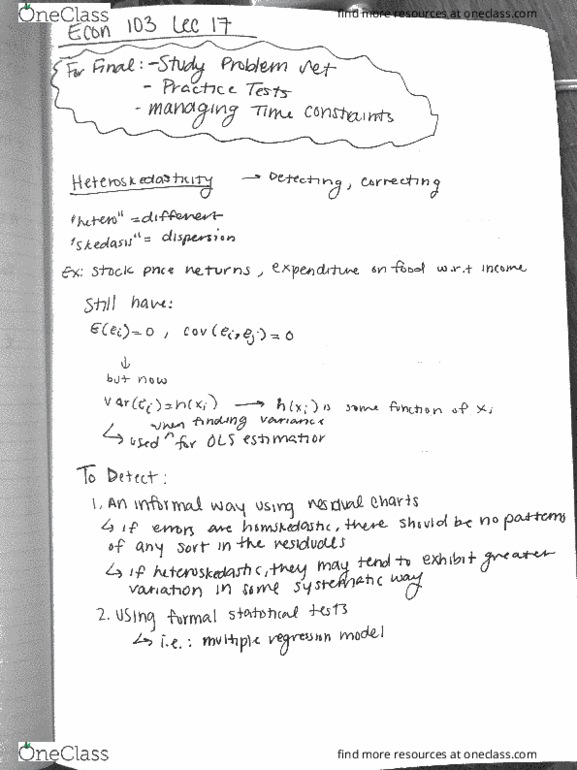 OneClass
find more resources at oneclass.com
Econ 103 Lec 17
For Final: - Study Problem set
- Practice Tests
- managing Time constraints
Heteroskedasticity → Detecting, correcting
"hetero" = different
"skedasis" = dispersion
Ex: stock price returns, expenditure on food w.r.t income
Still have:
E(ei)=0, cov(ei, ej)=0
↓
but now
var(ei)=h(xi) → h(xi) is some function of xi
when finding variance
↳ used ^ for OLS estimatior
To Detect:
1. An informal way using residual charts
↳ if errors are homskedastic, there should be no patterns
of any sort in the residuals
↳ if heteroskedastic, they may tend to exhibit greater
variation in some systematic way
2. Using formal statistical tests
↳ i.e.: multiple regression model
OneClass
find more resources at oneclass.com